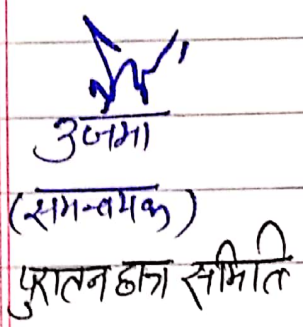 उजमा
(समन्वयक)
पुरातन छात्र समिति